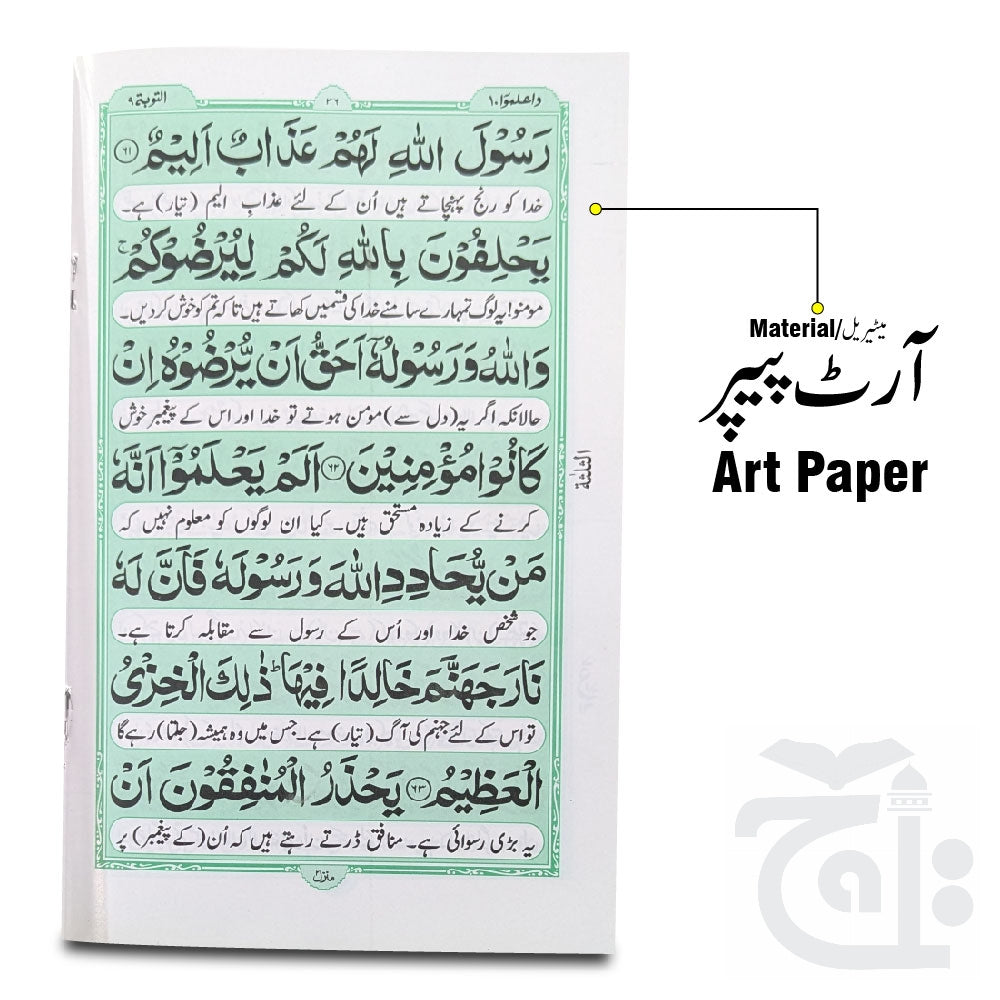 واعلموا ١٠
٢٦
التوبة ٩
رَسُوْلَ اللهِ لَهُمْ عَذَابٌ اَلِيْمٌ ﴿٦١﴾
خدا کو رنج پہنچاتے ہیں اُن کے لئے عذابِ الیم (تیار) ہے۔
يَحْلِفُوْنَ بِاللهِ لَكُمْ لِيُرْضُوْكُمْ ۚ
مومنو! یہ لوگ تمہارے سامنے خدا کی قسمیں کھاتے ہیں تاکہ تم کو خوش کردیں۔
وَاللهُ وَرَسُوْلُهٗۤ اَحَقُّ اَنْ يُّرْضُوْهُ اِنْ
حالانکہ اگر یہ (دل سے) مومن ہوتے تو خدا اور اس کے پیغمبر خوش
كَانُوْا مُؤْمِنِيْنَ ﴿٦٢﴾ اَلَمْ يَعْلَمُوْۤا اَنَّهٗ
کرنے کے زیادہ مستحق ہیں۔ کیا ان لوگوں کو معلوم نہیں کہ
مَنْ يُّحَادِدِ اللهَ وَرَسُوْلَهٗ فَاَنَّ لَهٗ
جو شخص خدا اور اُس کے رسول سے مقابلہ کرتا ہے۔
نَارَ جَهَنَّمَ خَالِدًا فِيْهَا ؕ ذٰلِكَ الْخِزْيُ
تو اس کے لئے جہنم کی آگ (تیار) ہے۔ جس میں وہ ہمیشہ (جلتا) رہے گا
الْعَظِيْمُ ﴿٦٣﴾ يَحْذَرُ الْمُنٰفِقُوْنَ اَنْ
یہ بڑی رسوائی ہے۔ منافق ڈرتے رہتے ہیں کہ اُن (کے پیغمبر) پر
منزل ٢
الثلثة
Material/میٹیریل
آرٹ پیپر
Art Paper
تاج